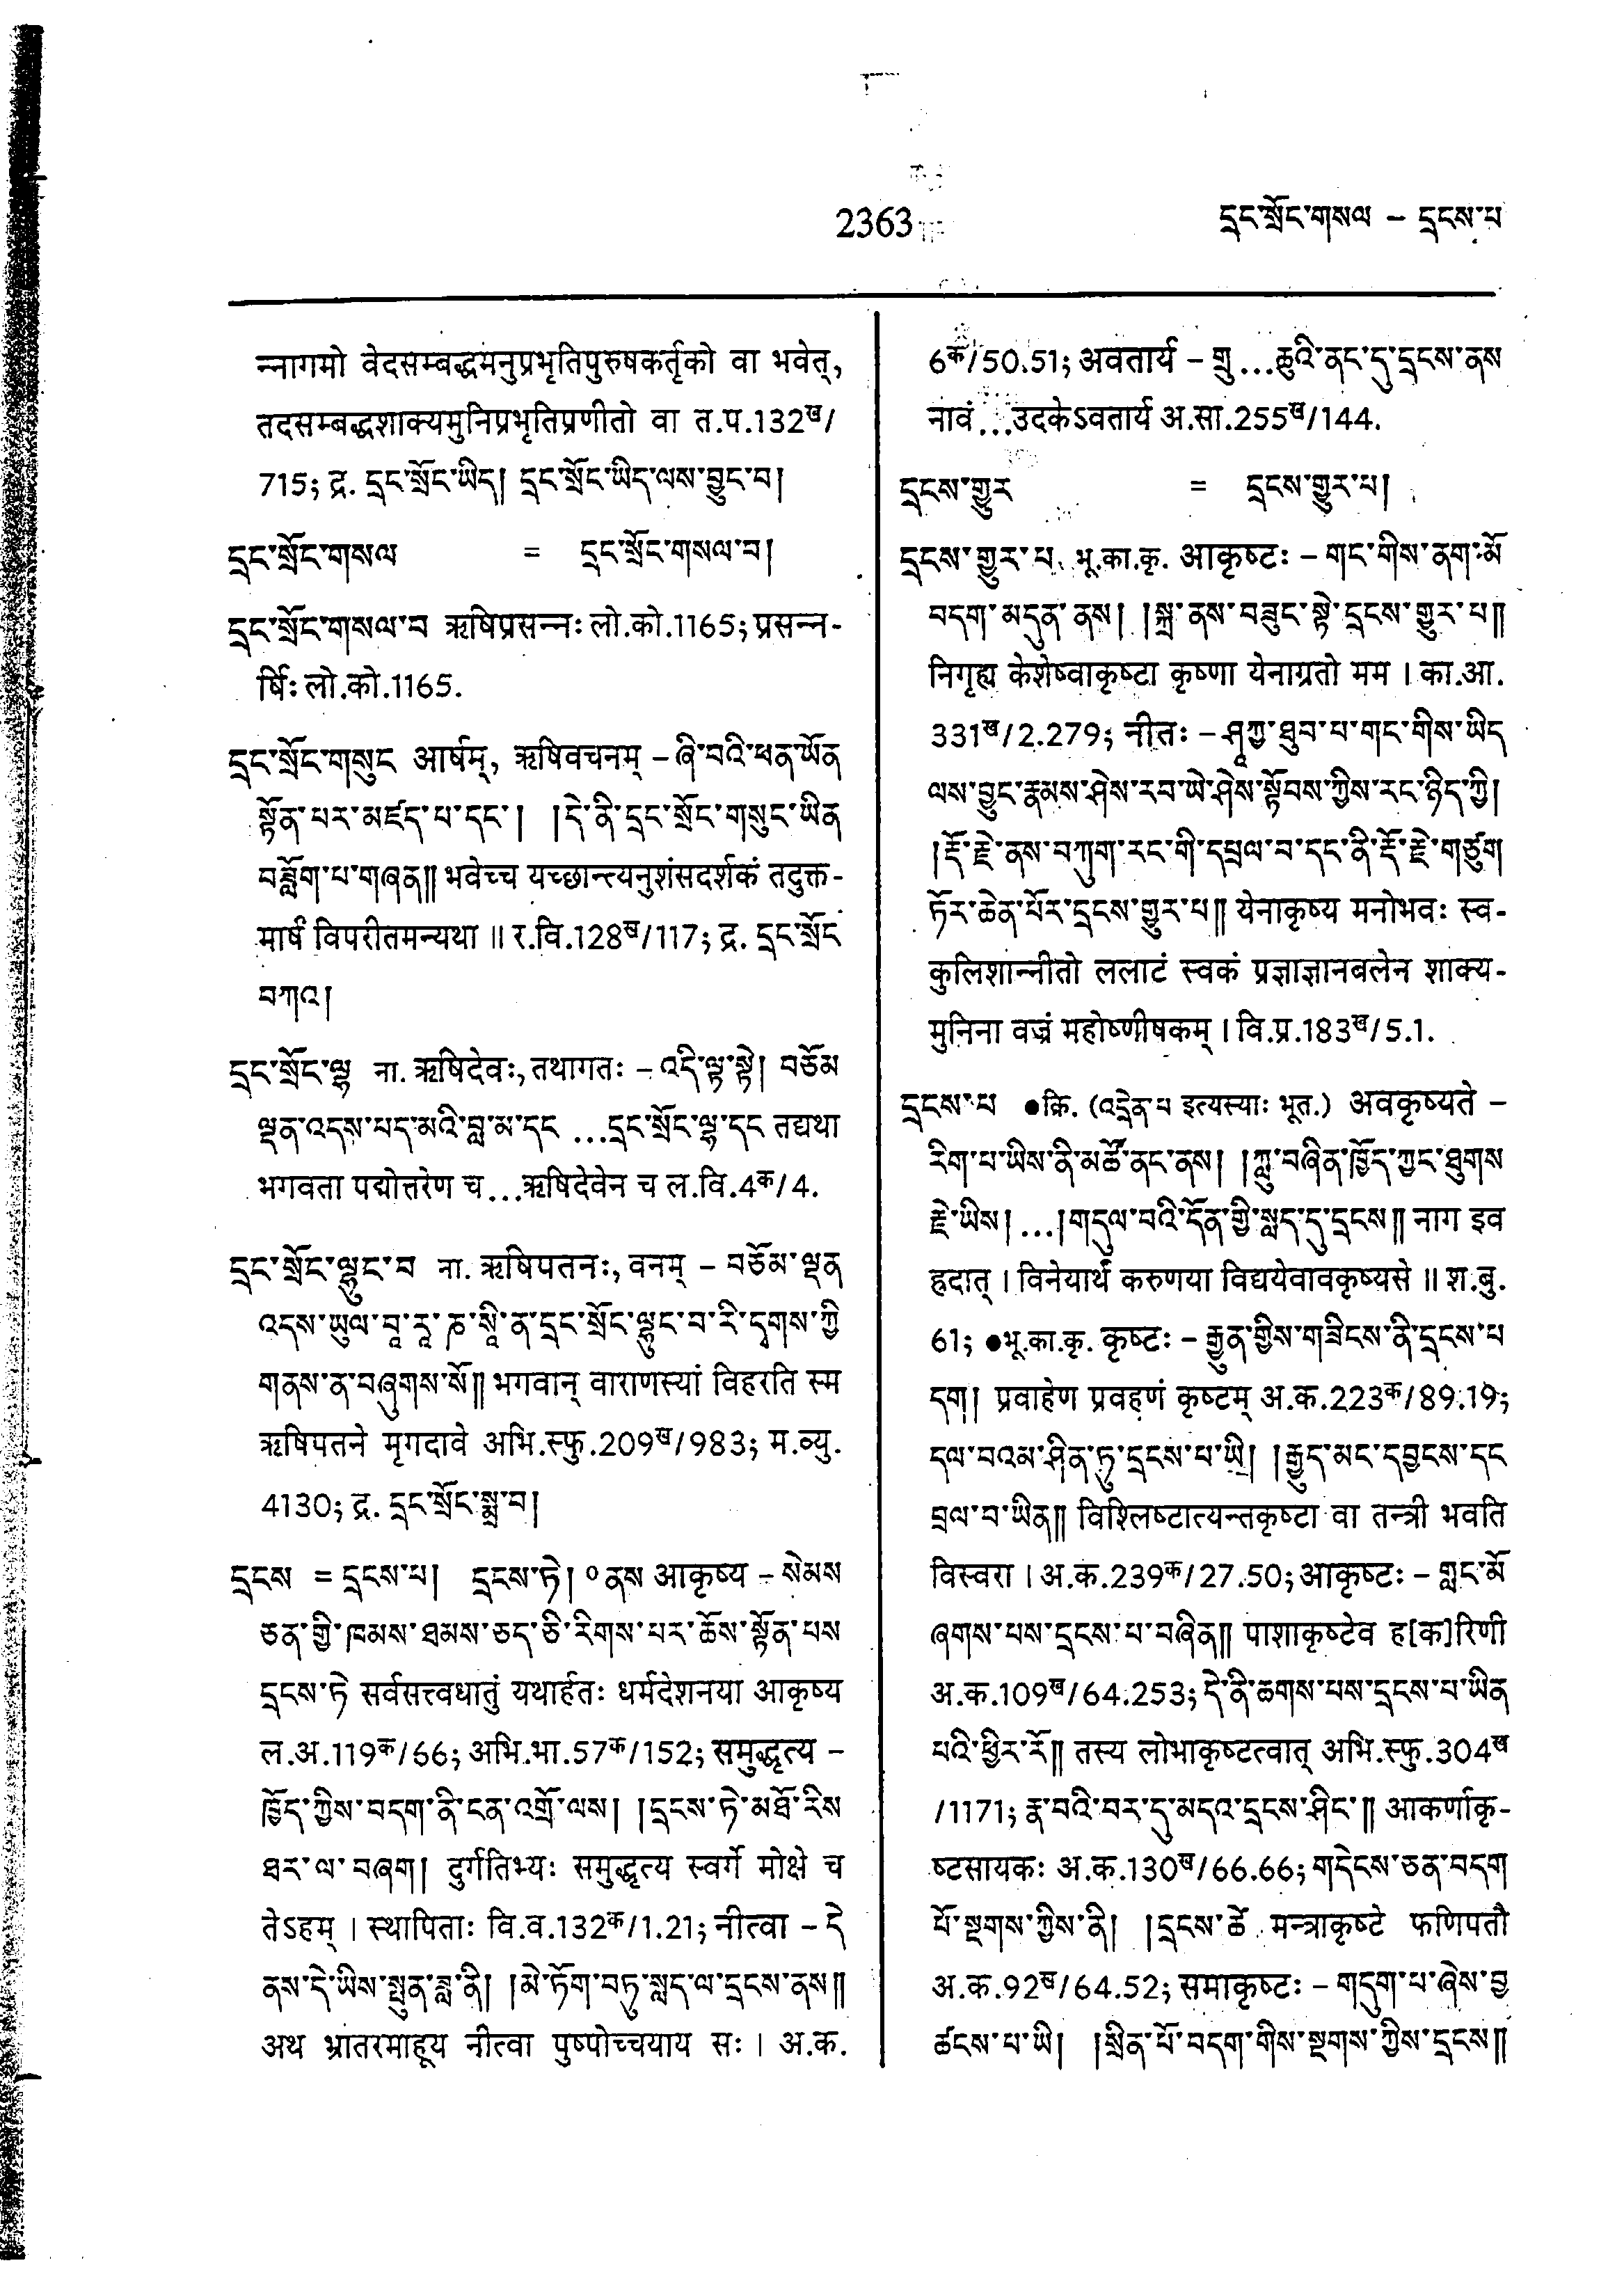 2363
དྲང་སྲོང་གསལ – དྲངས་པ
न्नागमो वेदसम्बद्धमनुप्रभृतिपुरुषकर्तृको वा भवेत्,
तदसम्बद्धशाक्यमुनिप्रभृतिप्रणीतो वा त.प.132ख/
715; द्र. དྲང་སྲོང་ཡིད། དྲང་སྲོང་ཡིད་ལས་བྱུང་བ།
དྲང་སྲོང་གསལ = དྲང་སྲོང་གསལ་བ།
དྲང་སྲོང་གསལ་བ ऋषिप्रसन्नः लो.को.1165; प्रसन्न-
र्षिः लो.को.1165.
དྲང་སྲོང་གསུང आर्षम्, ऋषिवचनम् – ཞི་བའི་ཕན་ཡོན
སྟོན་པར་མཛད་པ་དང་། །དེ་ནི་དྲང་སྲོང་གསུང་ཡིན
བཟློག་པ་གཞན།། भवेच्च यच्छान्त्यनुशंसदर्शकं तदुक्त-
मार्षं विपरीतमन्यथा ॥ र.वि.128ख/117; द्र. དྲང་སྲོང
བཀའ།
དྲང་སྲོང་ལྷ ना. ऋषिदेवः, तथागतः – འདི་ལྟ་སྟེ། བཅོམ
ལྡན་འདས་པད་མའི་བླ་མ་དང ...དྲང་སྲོང་ལྷ་དང तद्यथा
भगवता पद्मोत्तरेण च...ऋषिदेवेन च ल.वि.4क/4.
དྲང་སྲོང་ལྷུང་བ ना. ऋषिपतनः, वनम् – བཅོམ་ལྡན
འདས་ཡུལ་བཱ་རཱ་ཎ་སཱི་ན་དྲང་སྲོང་ལྷུང་བ་རི་དྭགས་ཀྱི
གནས་ན་བཞུགས་སོ།། भगवान् वाराणस्यां विहरति स्म
ऋषिपतने मृगदावे अभि.स्फु.209ख/983; म.व्यु.
4130; द्र. དྲང་སྲོང་སྨྲ་བ།
དྲངས = དྲངས་པ། དྲངས་ཏེ། ०ནས आकृष्य – སེམས
ཅན་གྱི་ཁམས་ཐམས་ཅད་ཅི་རིགས་པར་ཆོས་སྟོན་པས
དྲངས་ཏེ सर्वसत्त्वधातुं यथार्हतः धर्मदेशनया आकृष्य
ल.अ.119क/66; अभि.भा.57क/152; समुद्धृत्य –
ཁྱོད་ཀྱིས་བདག་ནི་ངན་འགྲོ་ལས། །དྲངས་ཏེ་མཐོ་རིས
ཐར་ལ་བཞག། दुर्गतिभ्यः समुद्धृत्य स्वर्गे मोक्षे च
तेऽहम् । स्थापिताः वि.व.132क/1.21; नीत्वा – དེ
ནས་དེ་ཡིས་སྤུན་ཟླ་ནི། །མེ་ཏོག་བཏུ་སླད་ལ་དྲངས་ནས།།
अथ भ्रातरमाहूय नीत्वा पुष्पोच्चयाय सः । अ.क.
6क/50.51; अवतार्य – གྲུ...ཆུའི་ནང་དུ་དྲངས་ནས
नावं...उदकेऽवतार्य अ.सा.255ख/144.
དྲངས་གྱུར = དྲངས་གྱུར་པ།
དྲངས་གྱུར་པ भू.का.कृ. आकृष्टः – གང་གིས་ནག་མོ
བདག་མདུན་ནས། །སྐྲ་ནས་བཟུང་སྟེ་དྲངས་གྱུར་པ།།
निगृह्य केशेष्वाकृष्टा कृष्णा येनाग्रतो मम । का.आ.
331ख/2.279; नीतः – ཤཱཀྱ་ཐུབ་པ་གང་གིས་ཡིད
ལས་བྱུང་རྣམས་ཤེས་རབ་ཡེ་ཤེས་སྟོབས་ཀྱིས་རང་ཉིད་ཀྱི།
།རྡོ་རྗེ་ནས་བཀུག་རང་གི་དཔྲལ་བ་དང་ནི་རྡོ་རྗེ་གཙུག
ཏོར་ཆེན་པོར་དྲངས་གྱུར་པ།། येनाकृष्य मनोभवः स्व-
कुलिशान्नीतो ललाटं स्वकं प्रज्ञाज्ञानबलेन शाक्य-
मुनिना वज्रं महोष्णीषकम् । वि.प्र.183ख/5.1.
དྲངས་པ ●क्रि. (འདྲེན་པ इत्यस्याः भूत.) अवकृष्यते –
རིག་པ་ཡིས་ནི་མཚོ་ནང་ནས། །ཀླུ་བཞིན་ཁྱོད་ཀྱང་ཐུགས
རྗེ་ཡིས།...།གདུལ་བའི་དོན་གྱི་སླད་དུ་དྲངས།། नाग इव
ह्रदात् । विनेयार्थं करुणया विद्ययेवावकृष्यसे ॥ श.बु.
61; ●भू.का.कृ. कृष्टः – རྒྱུན་གྱིས་གཟིངས་ནི་དྲངས་པ
དག། प्रवाहेण प्रवहणं कृष्टम् अ.क.223क/89.19;
དལ་བའམ་ཤིན་ཏུ་དྲངས་པ་ཡི། །རྒྱུད་མང་དབྱངས་དང
བྲལ་བ་ཡིན།། विश्लिष्टात्यन्तकृष्टा वा तन्त्री भवति
विस्वरा । अ.क.239क/27.50; आकृष्टः – གླང་མོ
ཞགས་པས་དྲངས་པ་བཞིན།། पाशाकृष्टेव ह[क]रिणी
अ.क.109ख/64.253; དེ་ནི་ཆགས་པས་དྲངས་པ་ཡིན
པའི་ཕྱིར་རོ།། तस्य लोभाकृष्टत्वात् अभि.स्फु.304ख
/1171; རྣ་བའི་བར་དུ་མདའ་དྲངས་ཤིང་།། आकर्णाकृ-
ष्टसायकः अ.क.130ख/66.66; གདེངས་ཅན་བདག
པོ་སྔགས་ཀྱིས་ནི། །དྲངས་ཚེ मन्त्राकृष्टे फणिपतौ
अ.क.92ख/64.52; समाकृष्टः – གདུག་པ་ཞེས་བྱ
ཚངས་པ་ཡི། །སྲིན་པོ་བདག་གིས་སྔགས་ཀྱིས་དྲངས།།